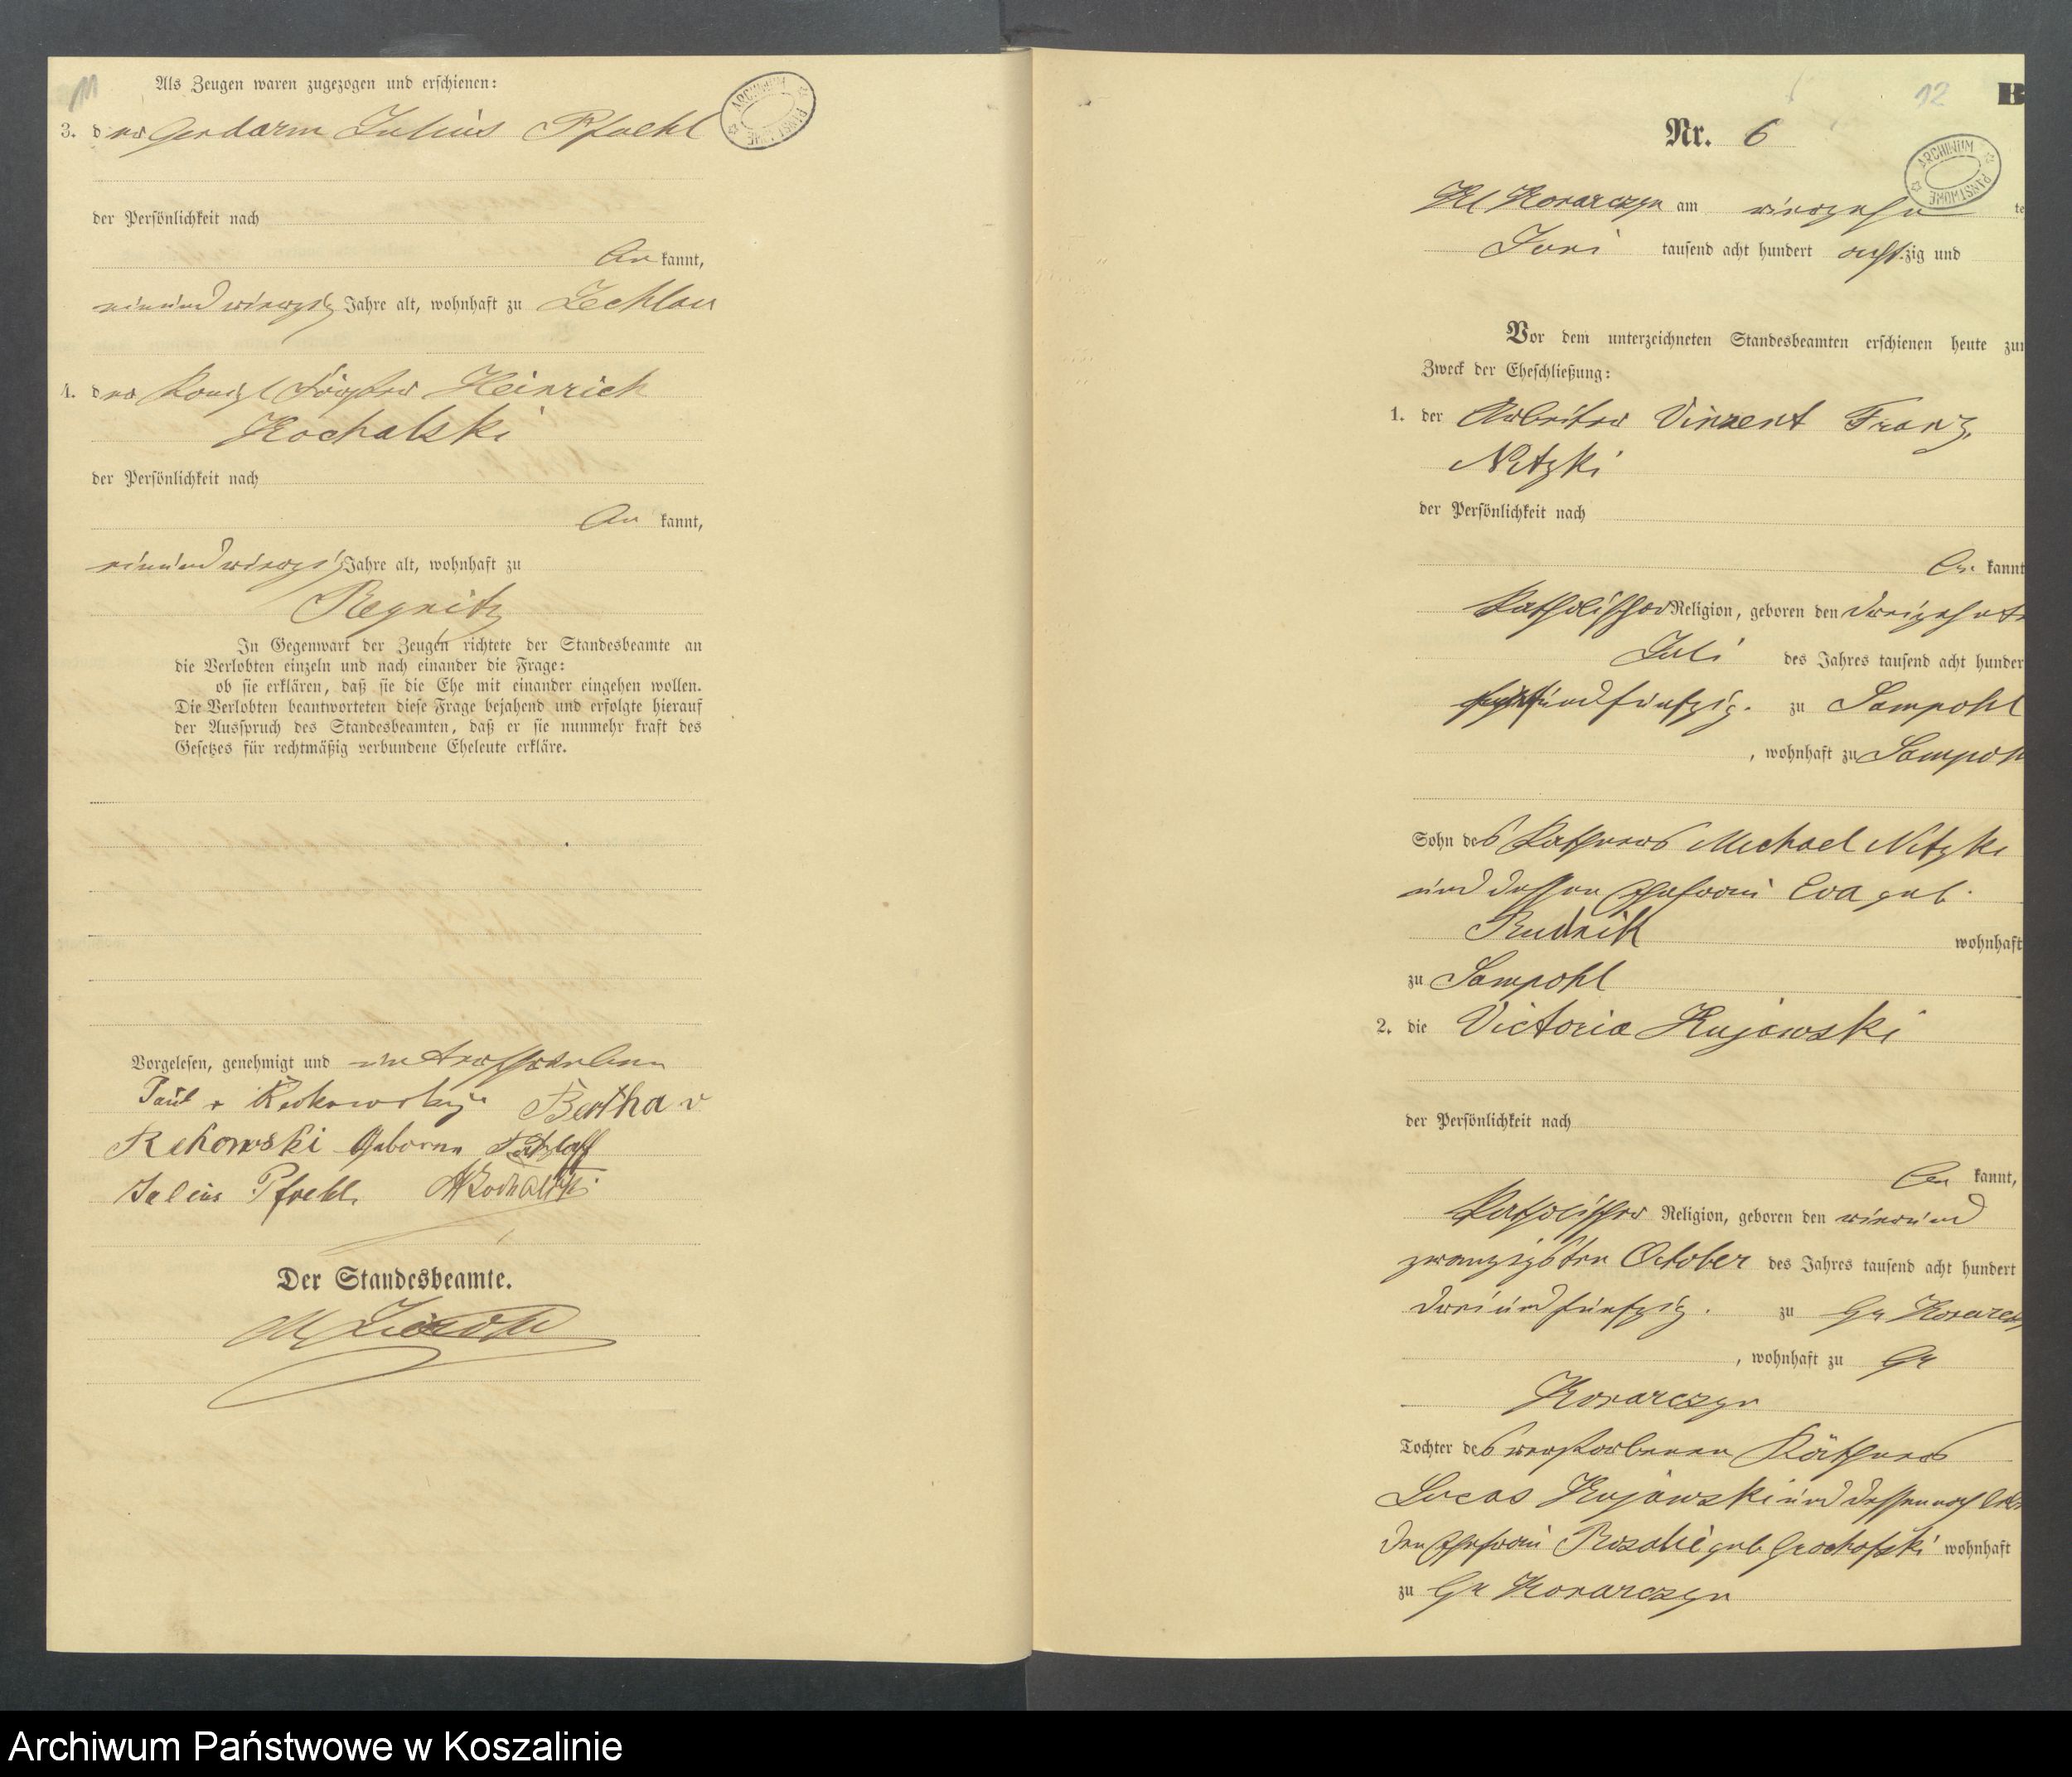 11
Als Zeugen waren zugezogen und erschienen:
3. der Gendarm Julius Pfoehl
ARCHIWUM PAŃSTWOWE
der Persönlichkeit nach
bekannt,
einundvierzig Jahre alt, wohnhaft zu Zechlau
4. der Königl Förster Heinrich
Kochalski
der Persönlichkeit nach
bekannt,
einundvierzig Jahre alt, wohnhaft zu
Pegnitz
In Gegenwart der Zeugen richtete der Standesbeamte an
die Verlobten einzeln und nach einander die Frage:
ob sie erklären, daß sie die Ehe mit einander eingehen wollen.
Die Verlobten beantworteten diese Frage bejahend und erfolgte hierauf
der Ausspruch des Standesbeamten, daß er sie nunmehr kraft des
Gesetzes für rechtmäßig verbundene Eheleute erkläre.
Vorgelesen, genehmigt und unterschrieben
Paul v Rekowsky Bertha v
Rekowski Geborne
Julius Pfoehl. HKochalski
Der Standesbeamte.
12
B
Nr. 6
ARCHIWUM PAŃSTWOWE
Kl Konarczyn am vierzehn te
Juni tausend acht hundert achtzig und
Vor dem unterzeichneten Standesbeamten erschienen heute zum
Zweck der Eheschließung:
1. der Arbeiter Vinzent Franz
Nitzki
der Persönlichkeit nach
bekannt
katholischer Religion, geboren den dreizehnte
Juli des Jahres tausend acht hunder
undfünfzig. zu Sampohl
, wohnhaft zu Sampohl
Sohn des Käthners Michael Nitzki
und dessen Ehefrau Eva geb.
Rudnik wohnhaft
zu Sampohl
2. die Victoria Kujawski
der Persönlichkeit nach
bekannt,
katholischer Religion, geboren den vierund
zwanzigsten October des Jahres tausend acht hundert
dreiundfünfzig. zu Gr Konarczyn
, wohnhaft zu Gr
Konarczyn
Tochter des verstorbenen Käthners
Lucas Kujawski und dessen noch leben
den Ehefrau Rosalie geb Grochofski wohnhaft
zu Gr Konarczyn
Archiwum Państwowe w Koszalinie